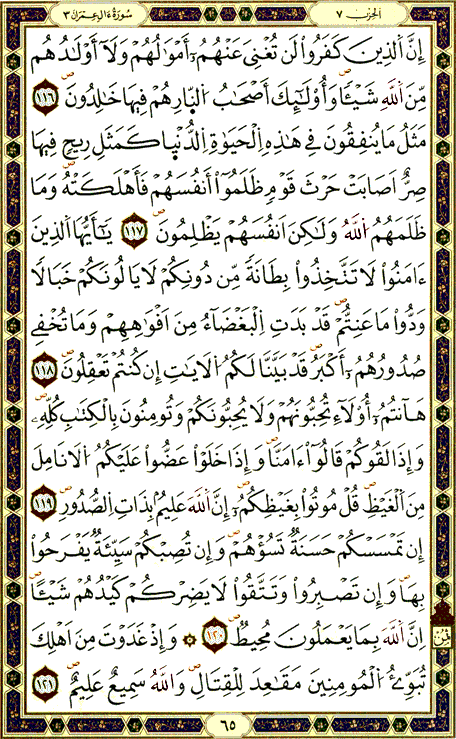 الحِزْب ٧
سُورَةُ ءَالِ عِمْرَان ٣
إِنَّ اَلذِينَ كَفَرُواْ لَن تُغْنِيَ عَنْهُمُۥٓ أَمْوَٰلُهُمْ وَلَآ أَوْلَٰدُهُم
مِّنَ اَللَّهِ شَيْـٔاٗ وَأُوْلَٰٓئِكَ أَصْحَٰبُ اُلنّ۪ارِ هُمْ فِيهَا خَٰلِدُونَ ١١٦
مَثَلُ مَا يُنفِقُونَ فِے هَٰذِهِ اِلْحَيَوٰةِ اِلدُّنْي۪ا كَمَثَلِ رِيحٖ فِيهَا
صِرٌّ اَصَابَتْ حَرْثَ قَوْمٖ ظَلَمُوٓاْ أَنفُسَهُمْ فَأَهْلَكَتْهُ وَمَا
ظَلَمَهُمُ اُللَّهُ وَلَٰكِنَ اَنفُسَهُمْ يَظْلِمُونَ ١١٧ يَٰٓأَيُّهَا اَلذِينَ
ءَامَنُواْ لَا تَتَّخِذُواْ بِطَانَةٗ مِّن دُونِكُمْ لَا يَالُونَكُمْ خَبَالٗا
وَدُّواْ مَا عَنِتُّمْ قَدْ بَدَتِ اِلْبَغْضَآءُ مِنَ اَفْوَٰهِهِمْ وَمَا تُخْفِے
صُدُورُهُمُۥٓ أَكْبَرُ قَدْ بَيَّنَّا لَكُمُ اُلَايَٰتِ إِن كُنتُمْ تَعْقِلُونَ ١١٨
هَآنتُمُۥٓ أُوْلَآءِ تُحِبُّونَهُمْ وَلَا يُحِبُّونَكُمْ وَتُومِنُونَ بِالْكِتَٰبِ كُلِّهِۦ
وَإِذَا لَقُوكُمْ قَالُوٓاْ ءَامَنَّا وَإِذَا خَلَوْاْ عَضُّواْ عَلَيْكُمُ اُلَانَامِلَ
مِنَ اَلْغَيْظِ قُلْ مُوتُواْ بِغَيْظِكُمُۥٓ إِنَّ اَللَّهَ عَلِيمُۢ بِذَاتِ اِلصُّدُورِ ١١٩
إِن تَمْسَسْكُمْ حَسَنَةٞ تَسُؤْهُمْ وَإِن تُصِبْكُمْ سَيِّئَةٞ يَفْرَحُواْ
بِهَا وَإِن تَصْبِرُواْ وَتَتَّقُواْ لَا يَضِرْكُمْ كَيْدُهُمْ شَيْـٔاً
اِنَّ اَللَّهَ بِمَا يَعْمَلُونَ مُحِيطٞ ١٢٠ ۞ وَإِذْ غَدَوْتَ مِنَ اَهْلِكَ
تُبَوِّئُ اُلْمُومِنِينَ مَقَٰعِدَ لِلْقِتَالِ وَاللَّهُ سَمِيعٌ عَلِيمٌ ١٢١
ثمن
٦٥